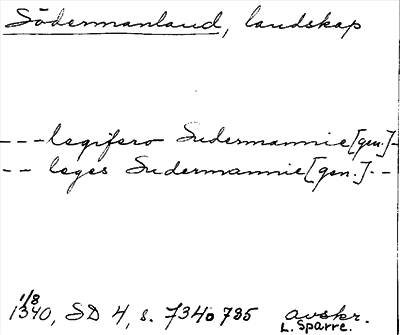 Södermanland, landskap
---legifero Sudermannie [gen.]-
-- leges Sudermannie [gen.]--
1/8
1340, SD 4, s. 734o 735 avskr.
L. Sparre.